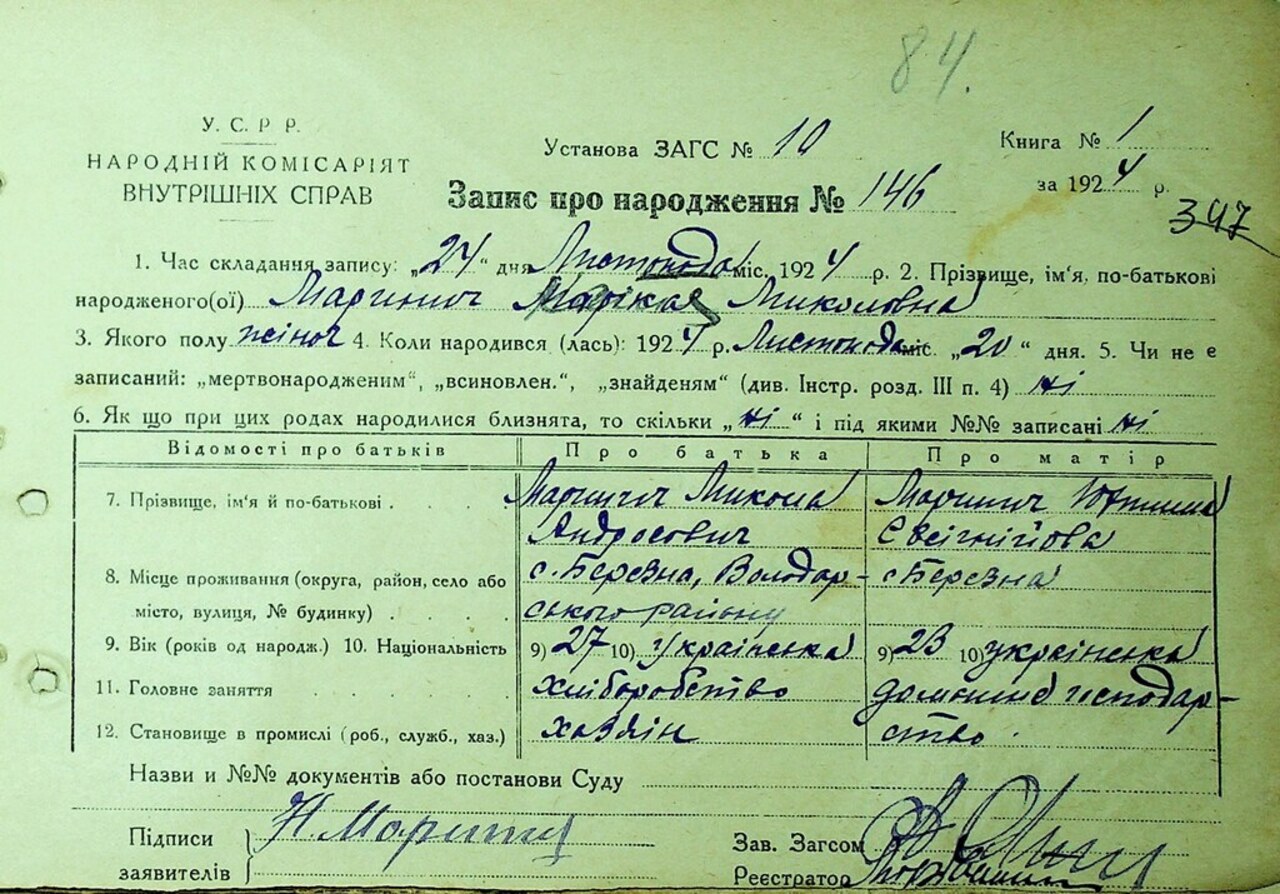 84.
У. С. Р Р.
НАРОДНІЙ КОМІСАРІЯТ
ВНУТРІШНІХ СПРАВ
Установа ЗАГС № 10
Книга № 1
за 1924 р.
Запис про народження № 146
347
1. Час складання запису: „24“ дня Листопода міс. 1924 р. 2. Прізвище, ім'я, по-батькові
народженого(ої) Маринич Миколовна
3. Якого полу жіноч 4. Коли народився (лась): 1924 р. Листопода міс. „20“ дня. 5. Чи не є
записаний: „мертвонародженим“, „всиновлен.“, „знайденям“ (див. Інстр. розд. III п. 4) ні
6. Як що при цих родах народилися близнята, то скільки „ні“ і під якими №№ записані ні
Відомості про батьків Про батька Про матір
7. Прізвище, ім'я й по-батькові . . . . Маринич Микола Маринич
Андросович
8. Місце проживання (округа, район, село або с. Березна, Володар- с Березна
місто, вулиця, № будинку) . . . . ського району
9. Вік (років од народж.) 10. Національність 9) 27 10) українська 9) 23 10) українська
11. Головне заняття . . . . . хліборобство домашнє господар-
12. Становище в промислі (роб., служб., хаз.) хазяїн ство.
Назви и №№ документів або постанови Суду
Підписи Н Маринич Зав. Загсом
заявителів Реєстратор